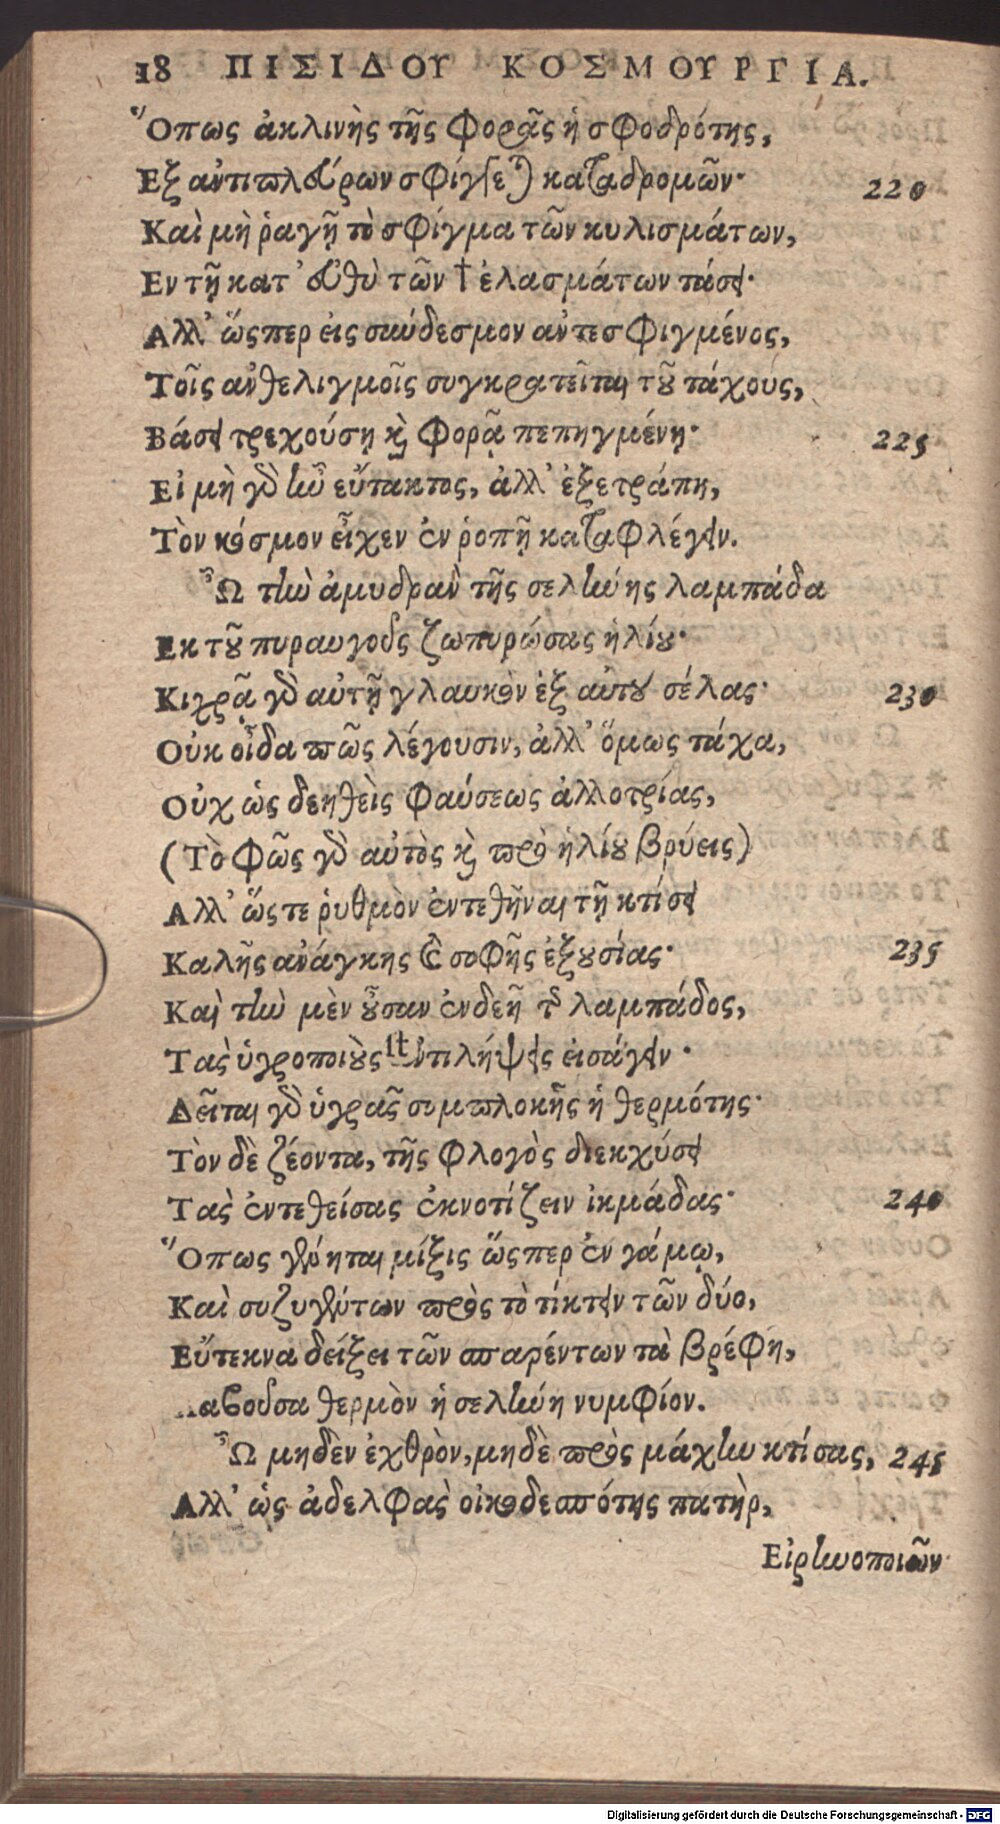 18 ΠΙΣΙΔΟΥ ΚΟΣΜΟΥΡΓΙΑ.
Ὅπως ἀκλινὴς τῆς φορᾶς ἡ σφοδρότης,
Εξ ἀντιπλεύρων σφίγγεται καταδρομῶν· 220
Καὶ μὴ ῥαγῇ τὸ σφίγμα τῶν κυλισμάτων,
Εν τῇ κατ' εὐθὺ τῶν † ἐλασμάτων τάσει·
Αλλ' ὥσπερ εἰς σύνδεσμον ἀντεσφιγμένος,
Τοῖς ἀνθελιγμοῖς συγκρατεῖται τοῦ τάχους,
Βάσει τρεχούσῃ καὶ φορᾷ πεπηγμένῃ· 225
Εἰ μὴ γὰρ ἦν εὔτακτος, ἀλλ' ἐξετράπη,
Τὸν κόσμον εἶχεν ἐν ῥοπῇ καταφλέγειν.
Ὦ τὴν ἀμυδρὰν τῆς σελήνης λαμπάδα
Εκ τοῦ πυραυγοῦς ζωπυρώσας ἡλίου·
Κιχρᾷ γὰρ αὐτῇ γλαυκὸν ἐξ αὐτοῦ σέλας· 230
Οὐκ οἶδα πῶς λέγουσιν, ἀλλ' ὅμως τάχα,
Οὐχ ὡς δεηθεὶς φαύσεως ἀλλοτρίας,
(Τὸ φῶς γὰρ αὐτὸς καὶ πρὸ ἡλίου βρύεις)
Αλλ' ὥστε ῥυθμὸν ἐντεθῆναι τῇ κτίσει
Καλῆς ἀνάγκης ἐκ σοφῆς ἐξουσίας· 235
Καὶ τὴν μὲν οὖσαν ἐνδεῆ τῆς λαμπάδος,
Τὰς ὑγροποιοὺς ἀντιλήψεις εἰσάγειν·
Δεῖται γὰρ ὑγρᾶς συμπλοκῆς ἡ θερμότης·
Τὸν δὲ ζέοντα, τῆς φλογὸς διεκχύσει
Τὰς ἐντεθείσας ἐκνοτίζειν ἰκμάδας· 240
Ὅπως γένηται μίξις ὥσπερ ἐν γάμῳ,
Καὶ συζυγέντων πρὸς τὸ τίκτειν τῶν δύο,
Εὔτεκνα δείξει τῶν σπαρέντων τὰ βρέφη,
Λαβοῦσα θερμὸν ἡ σελήνη νυμφίον.
Ὦ μηδὲν ἐχθρὸν, μηδὲ πρὸς μάχην κτίσας, 245
Αλλ' ὡς ἀδελφὰς οἰκοδεσπότης πατὴρ,
Εἰρηνοποιῶν
Digitalisierung gefördert durch die Deutsche Forschungsgemeinschaft - DFG